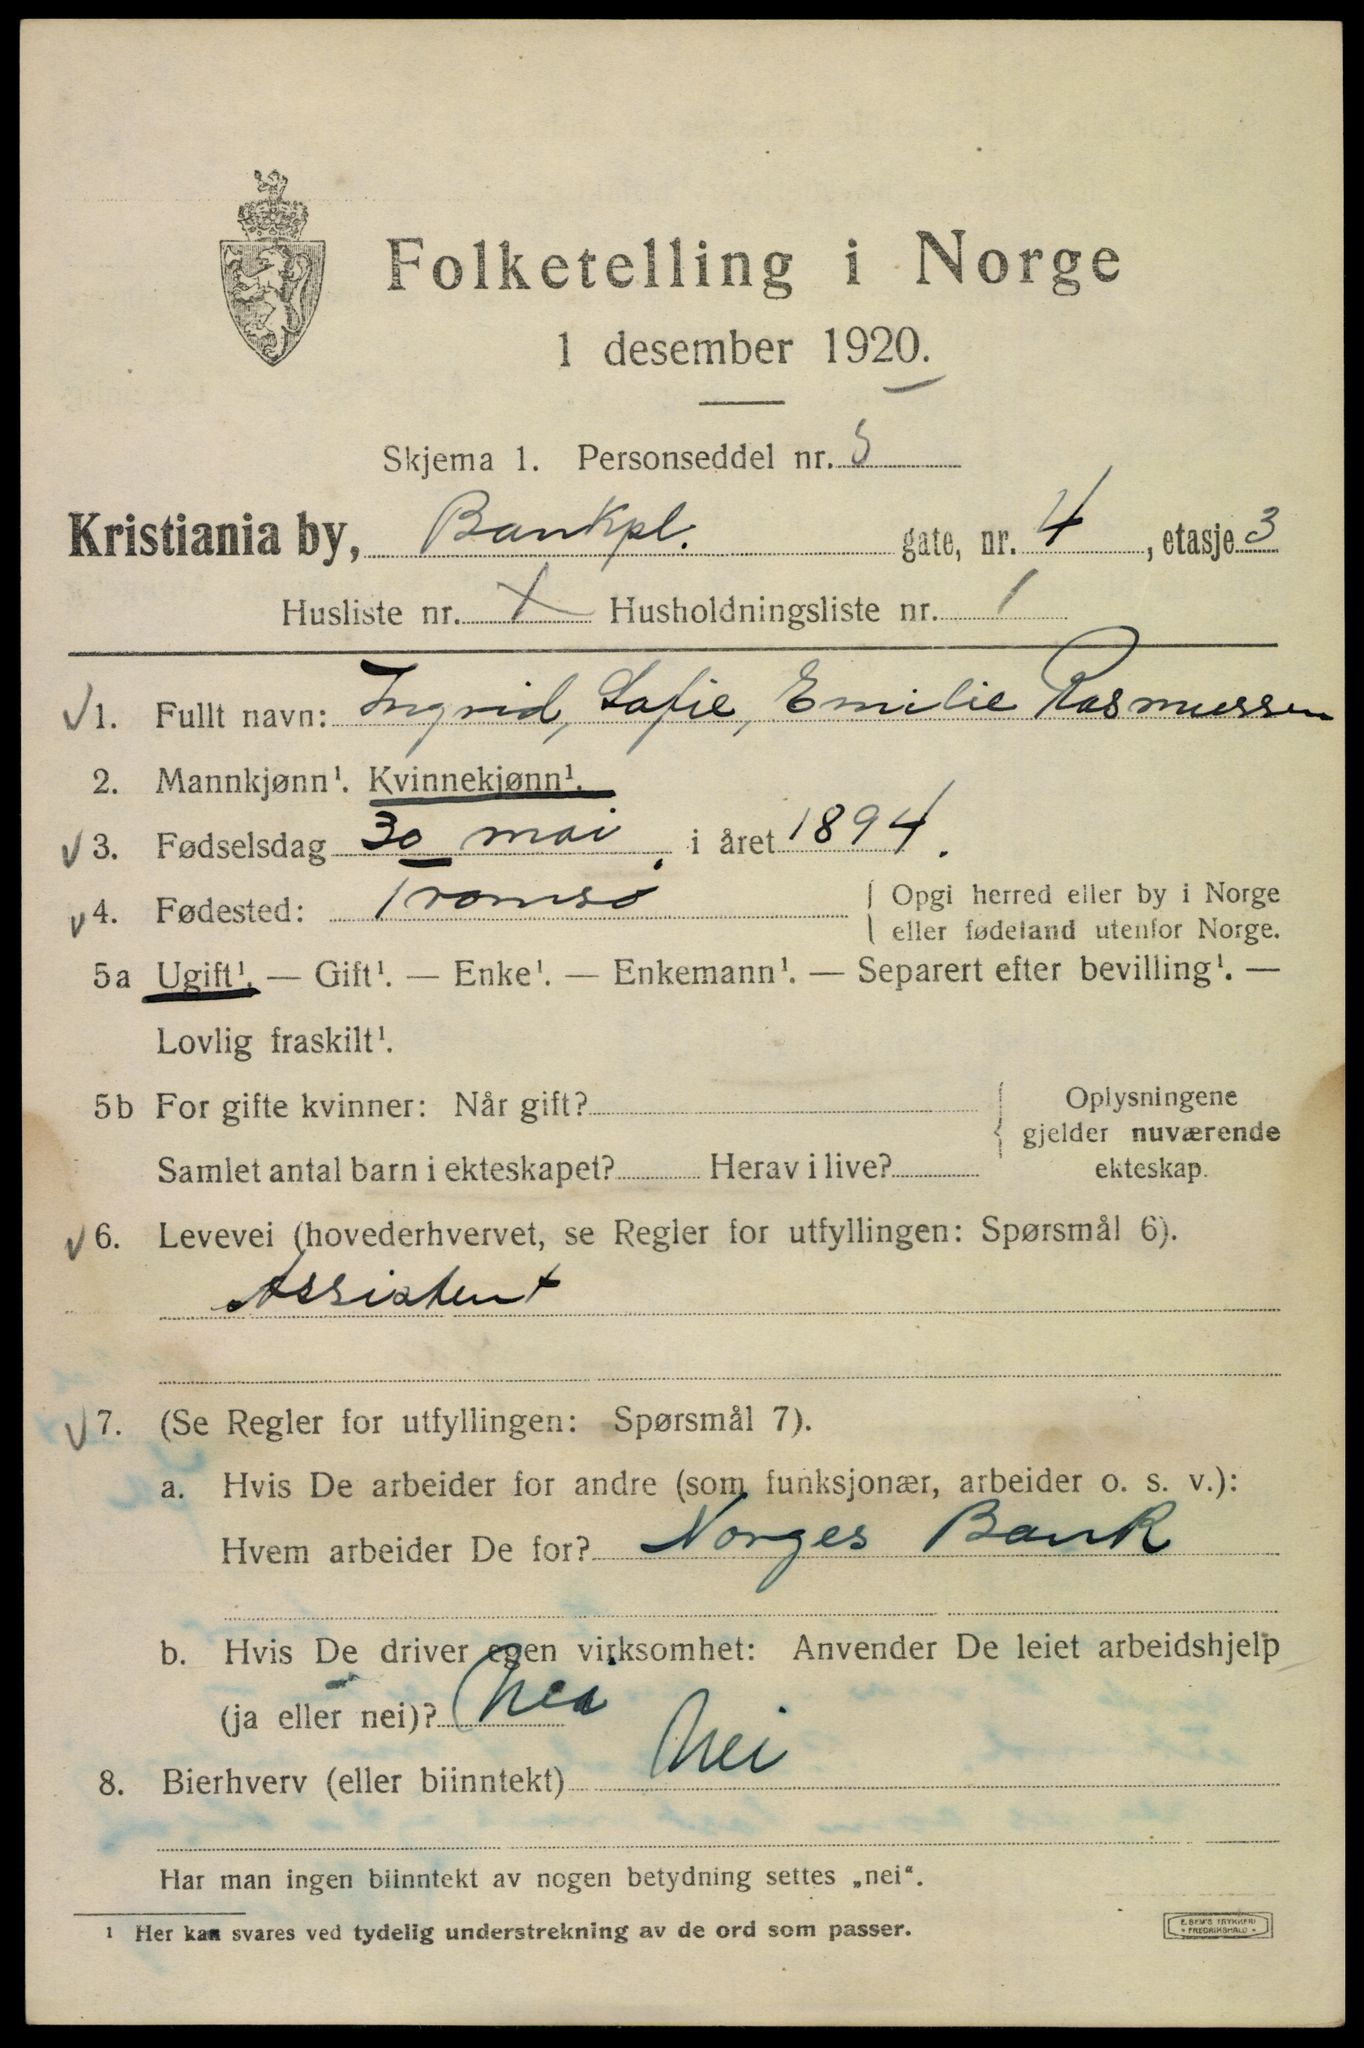 Folketelling i Norge
1 desember 1920.
Skjema 1. Personseddel nr. 5
Kristiania by, Bankpl. gate, nr. 4, etasje 3
Husliste nr. Husholdningsliste nr. 1
1. Fullt navn: Ingrid, Sofie, Emilie Rasmussen
2. Mannkjønn¹. Kvinnekjønn¹.
3. Fødselsdag 30 mai i året 1894.
4. Fødested: Tromsø { Opgi herred eller by i Norge
eller fødeland utenfor Norge.
5a Ugift¹. — Gift¹. — Enke¹. — Enkemann¹. — Separert efter bevilling¹. —
Lovlig fraskilt¹.
5b For gifte kvinner: Når gift? { Oplysningene
gjelder nuværende
Samlet antal barn i ekteskapet? Herav i live? ekteskap.
6. Levevei (hovederhvervet, se Regler for utfyllingen: Spørsmål 6).
Assistent
7. (Se Regler for utfyllingen: Spørsmål 7).
a. Hvis De arbeider for andre (som funksjonær, arbeider o. s. v.):
Hvem arbeider De for? Norges Bank
b. Hvis De driver egen virksomhet: Anvender De leiet arbeidshjelp
(ja eller nei)? Nei
8. Bierhverv (eller biinntekt) Nei
Har man ingen biinntekt av nogen betydning settes „nei“.
¹ Her kan svares ved tydelig understrekning av de ord som passer.
E. SEM'S TRYKKERI
• FREDRIKSHALD •